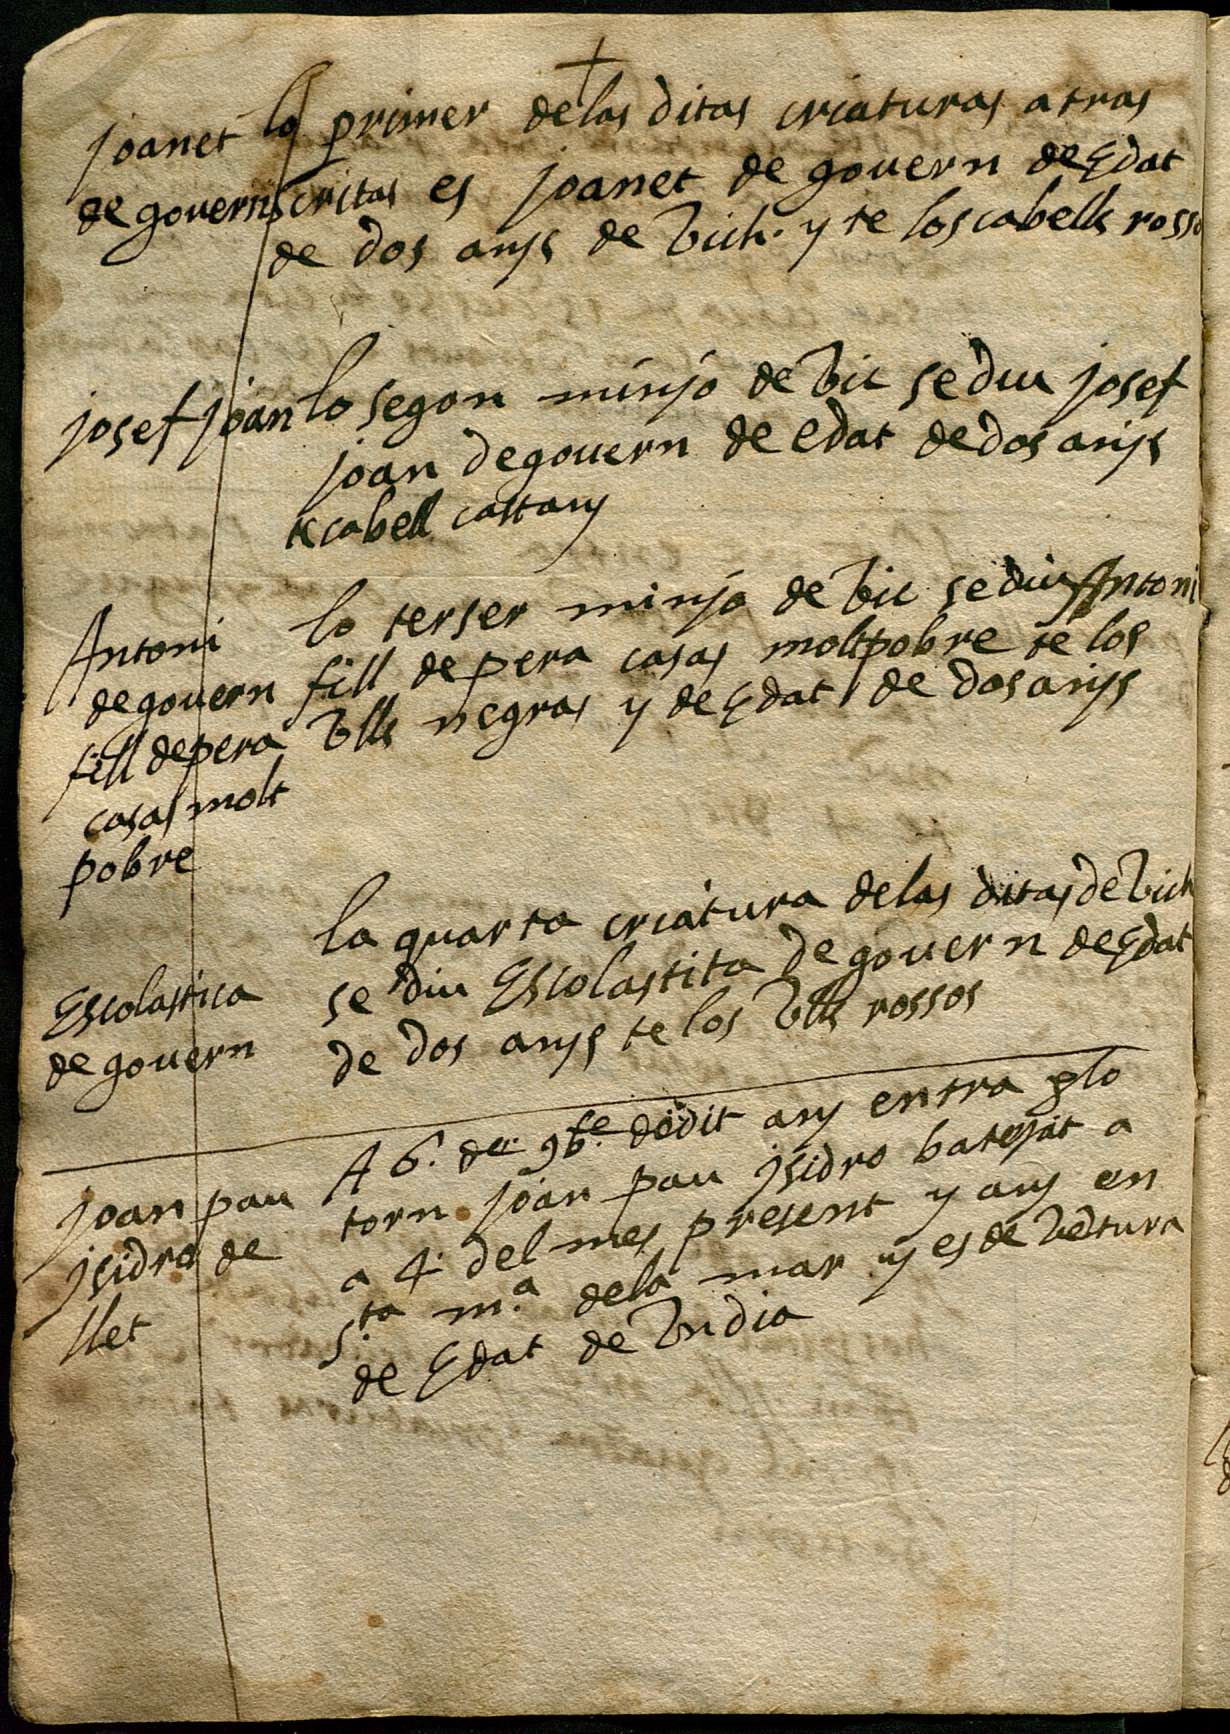 +
joanet
de govern
lo primer de las ditas criaturas atras
scritas es joanet de govern de Edat
de dos anys de Vich. y te los cabells rossos
josef joan
lo segon minjo de Vic se diu josef
joan de govern de edat de dos anys
te cabell castany
Antoni
de govern
fill de pera
casas molt
pobre
lo terser minjo de Vic se diu Antoni
fill de pera casas molt pobre te los
Vlls negras y de Edat de dos anys
Escolastica
de govern
la quarta criatura de las ditas de Vich
se diu Escolastita de govern de Edat
de dos anys te los Vlls rossos
joan pau
jsidro de
llet
A 6. de 9bre. dedit any entra p lo
torn joan pau jsidro batejat a
a 4. del mes present y any en
Sta. m.a dela mar y es de
de Edat de Vn dia